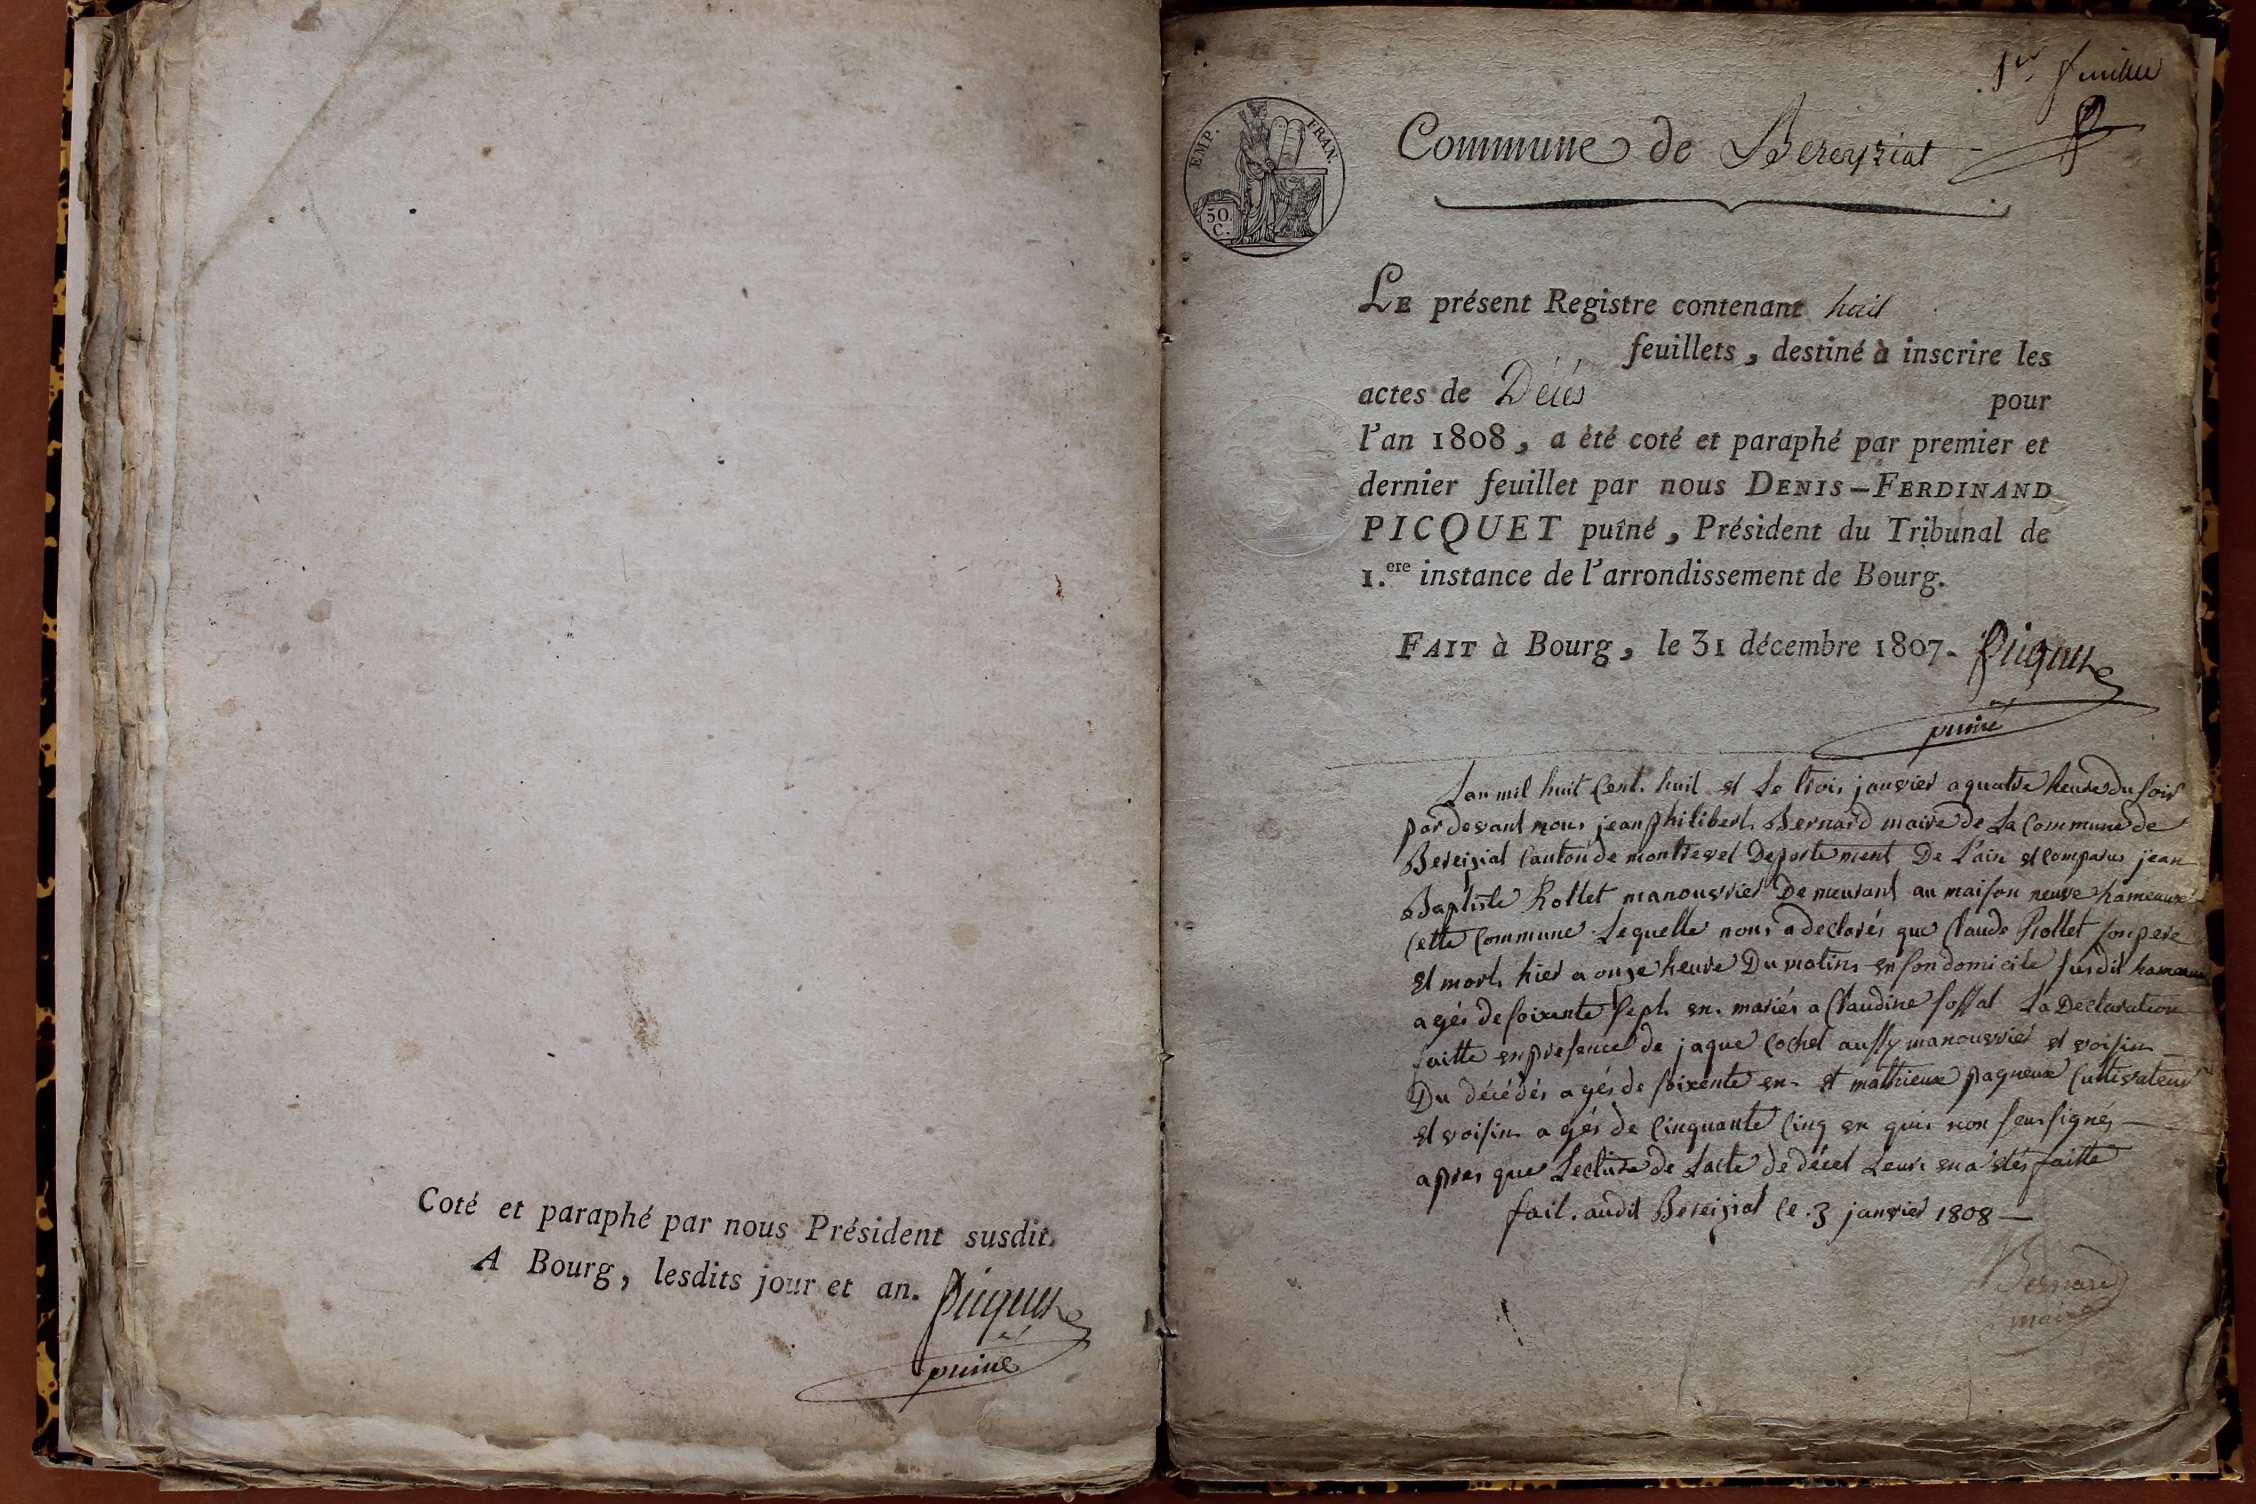 Coté et paraphé par nous Président susdit.
A Bourg, lesdits jour et an. Picquet
puiné
1er feuillet
EMP. FRAN.
50.
C.
Commune de Bereyziat
LE présent Registre contenant huit
feuillets, destiné à inscrire les
actes de Décès pour
l'an 1808, a èté coté et paraphé par premier et
dernier feuillet par nous DENIS-FERDINAND
PICQUET puîné, Président du Tribunal de
1.ere instance de l'arrondissement de Bourg.
FAIT à Bourg, le 31 décembre 1807. Picquet
puiné
Lan mil huit Cent huit et Le trois janvier a quatre heure du soir
par devant nous jean philibert Bernard maire de La Commune de
Bereiziat Canton de montrevel Departement De L'ain et Comparus jean
Baptiste Rollet manouvrier Demeurant au maison neuve hameaux de
Cette Commune Lequelle nous a declarés que Claude Rollet son pere
et mort hier a onze heure Du matins en son domicile susdit hameaux
agés de soixante sept en mariés a Claudine soffat La Declaration
faitte en presence de jaque Cochet aussy manouvrier et voisin
Du décédés agés de soixente en et mathieux pagneux Cultivateur
et voisin agés de Cinquante Cinq en quis non seu signés
apres que Lecture de Lacte de décet Leurs en a étés faitte
fait audit Bereiziat Ce 3 janvier 1808
Bernard
maire